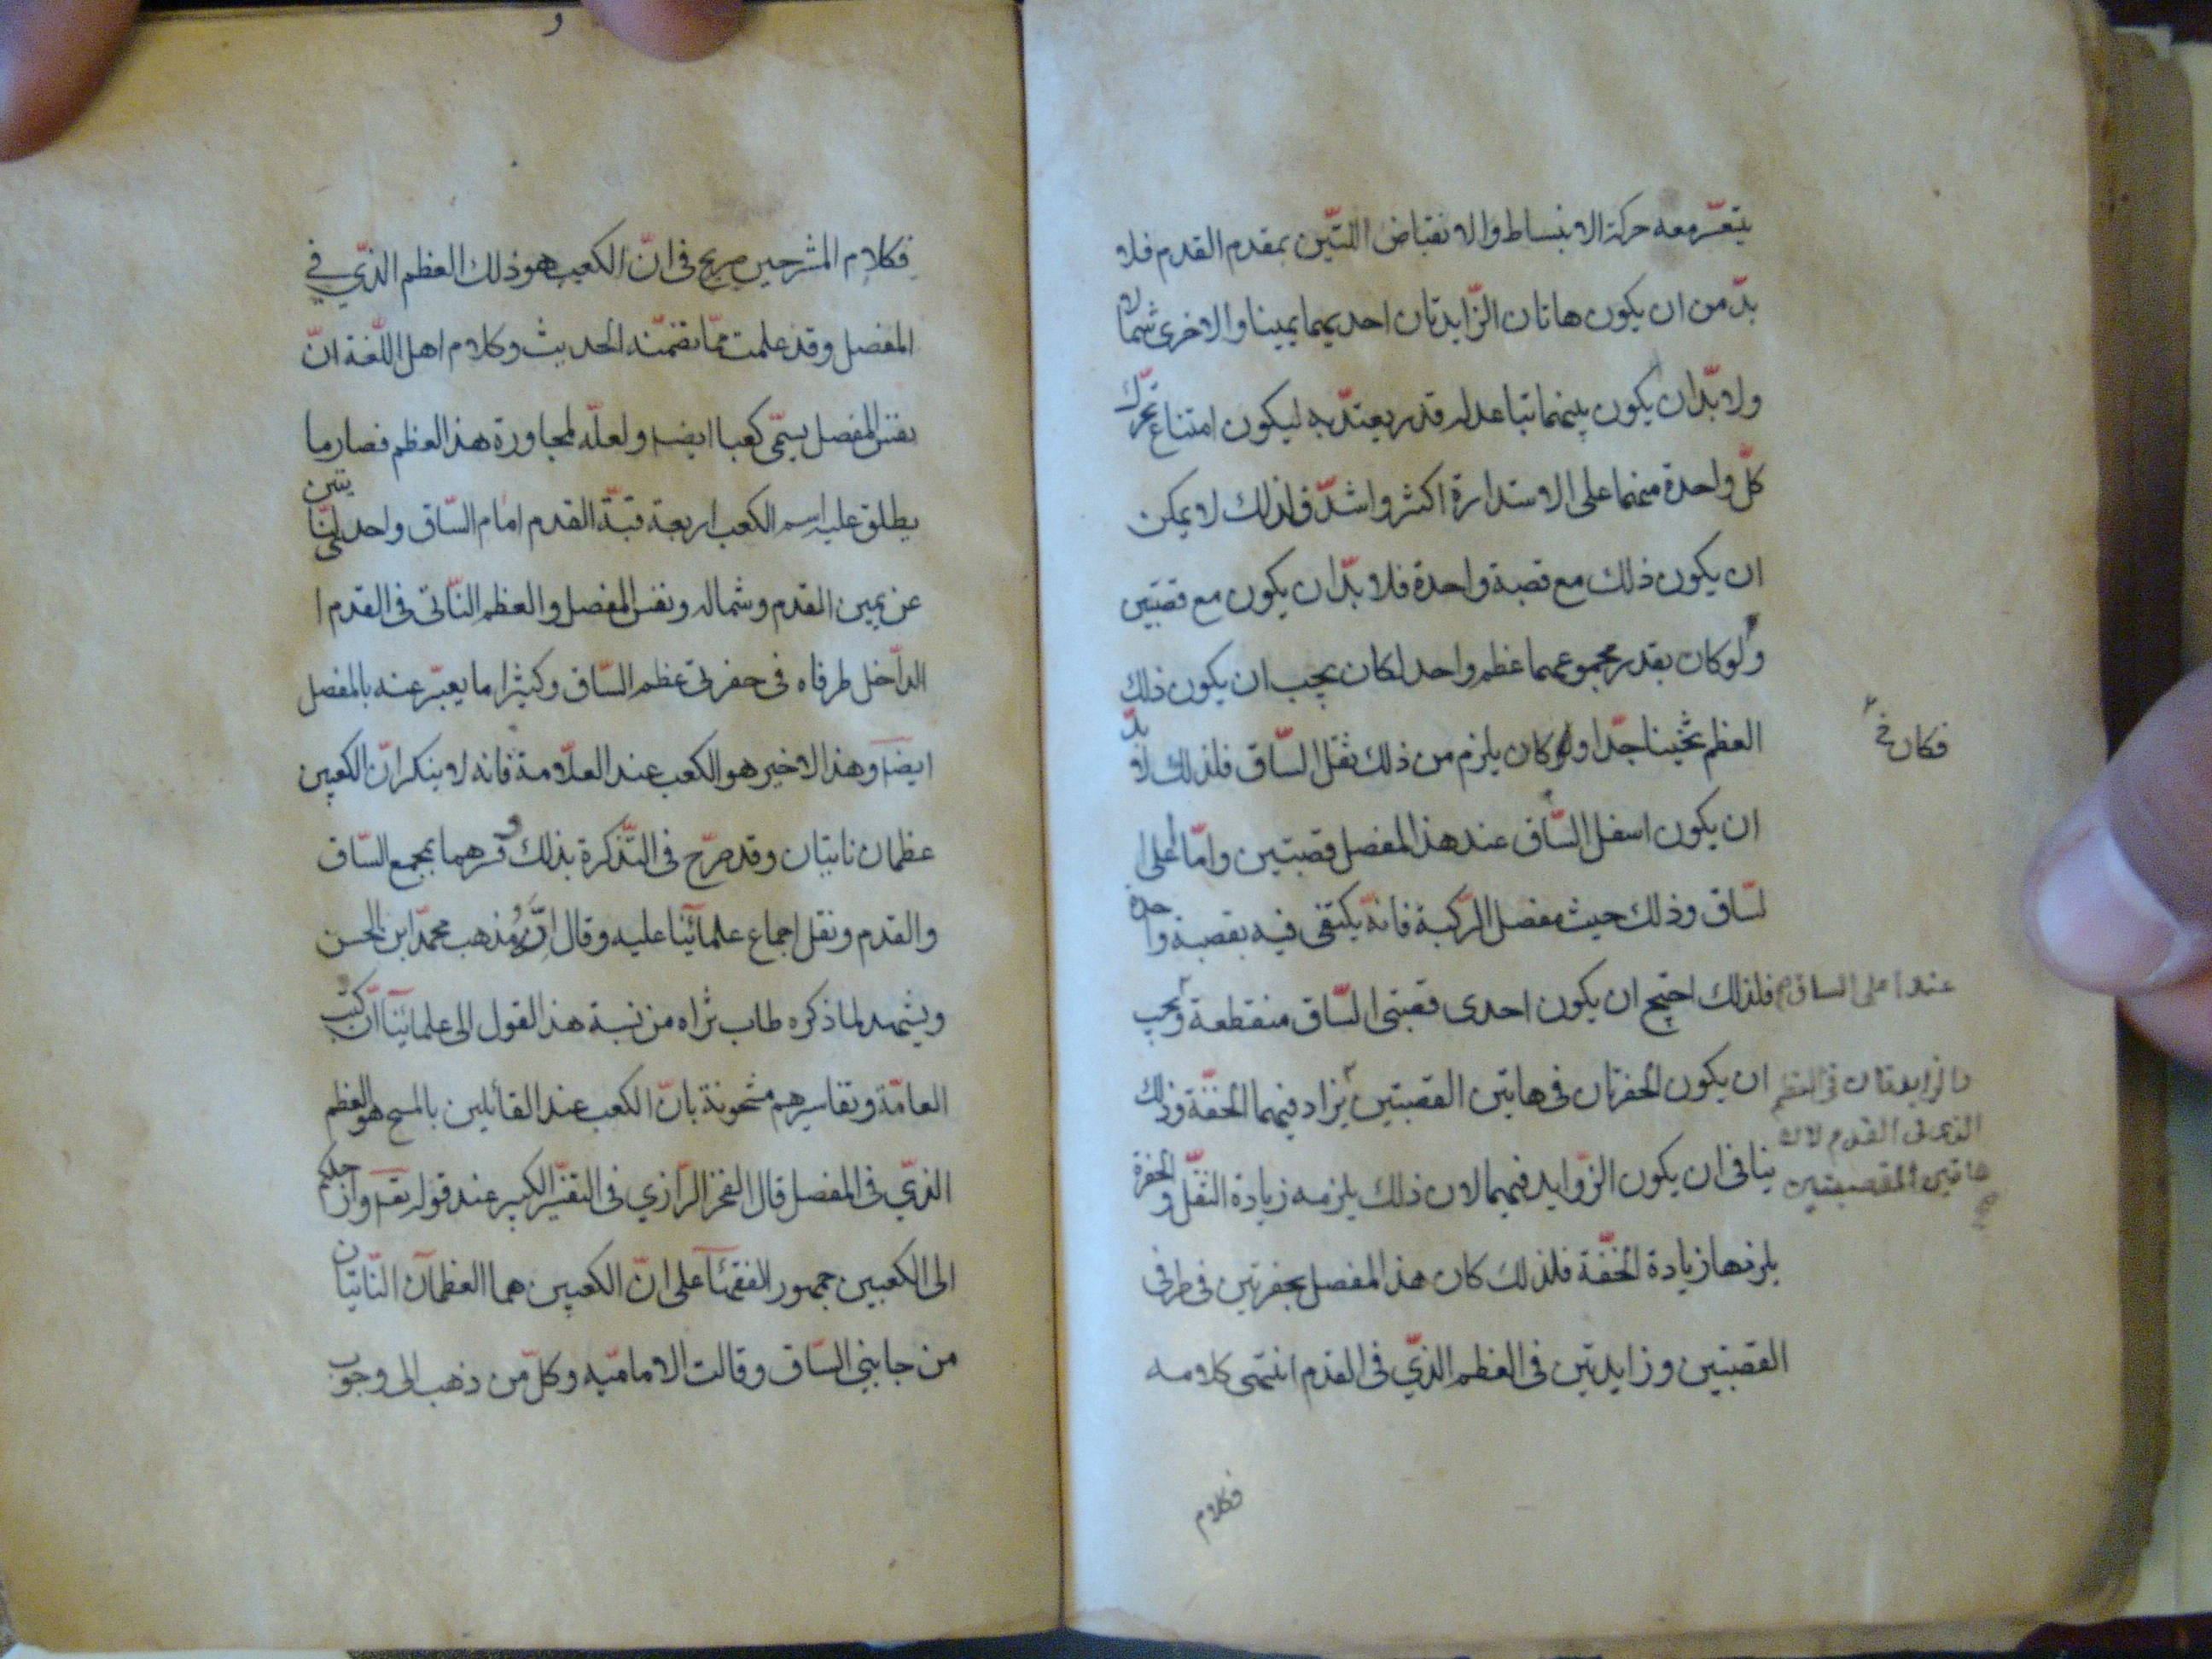 يتعسّر معه حركة الانبساط والانقباض اللتّين بمقدم القدم فلا
بدّ من ان يكون هاتان الزّايدتان احديهما يمينا والاخرى شمالا
ولا بدّ ان يكون بينهما تباعد له قدر يعتدّ به ليكون امتناع تحرّك
كلّ واحدة منهما على الاستدارة اكثر واشدّ فلذلك لا يمكن
ان يكون ذلك مع قصبة واحدة فلا بدّ ان يكون مع قصبتين
ولو كان بقدر مجموعهما عظم واحد لكان يجب ان يكون ذلك
العظم ثخينا جدّا ولو كان يلزم من ذلك ثقل السّاق فلذلك لا بدّ
فكان خ
ان يكون اسفل السّاق عند هذا المفصل قصبتين وامّا اعلى ا
لسّاق وذلك حيث مفصل الرّكبة فانّه يكتفى فيه بقصبة واحدة
فلذلك احتيج ان يكون احدى قصبتى السّاق منقطعة ويجب
عند اعلى الساق
ان يكون الحفرتان فى هاتين القصبتين يزاد فيهما الخفّة وذلك
والزايدتان فى العظم
الذى فى القدم لان
هاتين القصبتين
ينافى ان يكون الزّوايد فيهما لان ذلك يلزمه زيادة الثقّل والحفرة
يلزمها زيادة الخفّة فلذلك كان هذا المفصل بحفرتين فى طرفى
القصبتين وزايدتين فى العظم الذّي فى القدم انتهى كلامه
فكلام
فكلام المشرحين صريح فى انّ الكعب هو ذلك العظم الذّي في
المفصل وقد علمت ممّا تضمّنه الحديث وكلام اهل اللّغة انّ
نفس المفصل يسمّى كعبا ايضا ولعلّه لمجاورة هذا العظم فصار ما
يطلق عليه اسم الكعب اربعة قبّة القدم امام السّاق واحد النّاتيين
عن يمين القدم وشماله ونفس المفصل والعظم النّاتى فى القدم ا
الدّاخل طرفاه فى حفرتى عظم السّاق وكثيرا ما يعبّر عنه بالمفصل
ايضا وهذا الاخير هو الكعب عند العلّامة فانه لا ينكر انّ الكعبين
عظمان ناتيان وقد صرّح فى التّذكرة بذلك وفسّرهما بمجمع السّاق
والقدم ونقل اجماع علمآئنا عليه وقال انّه مذهب محمّد ابن الحسن
ويشهد لما ذكره طاب ثراه من نسبة هذا القول الى علمائنآ انّ كتب
العامّة وتفاسيرهم مشحونة بانّ الكعب عند القآئلين بالمسح هو العظم
الذّي فى المفصل قال الفخر الرّازي فى التفسّير الكبير عند قوله تعم وارجلكم
الى الكعبين جمهور الفقهآء على انّ الكعبين هما العظمآن النّاتيان
من جانبي السّاق وقالت الاماميّه وكلّ من ذهب الى وجوب